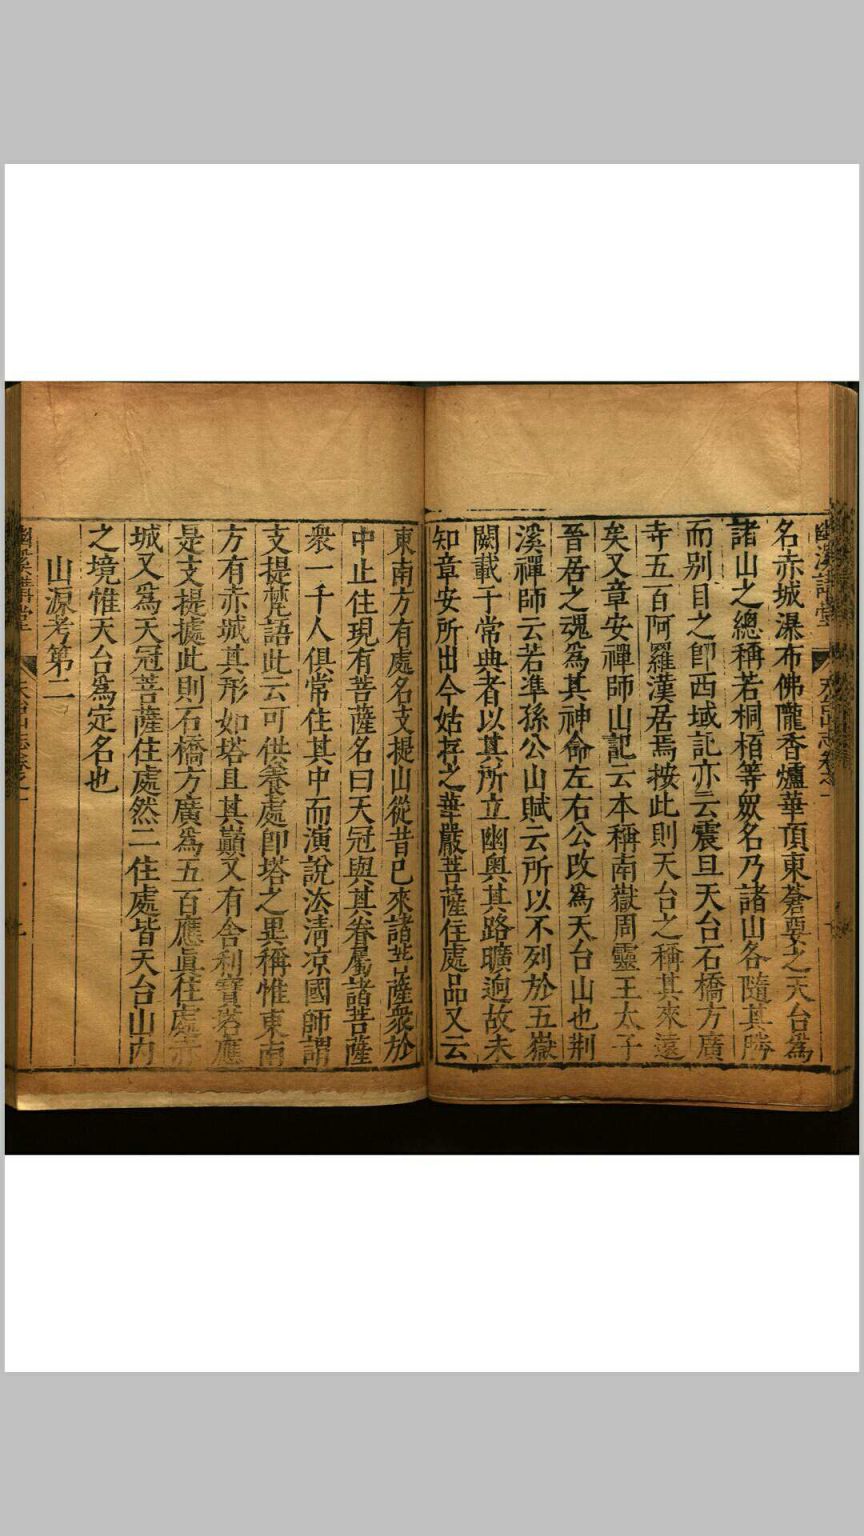 幽溪講堂 天台山志卷之一
名赤城瀑布佛隴香爐華頂東蒼要之天台爲
諸山之總稱若桐栢等衆名乃諸山各隨其勝
而别目之卽西域記亦云震旦天台石橋方廣
寺五百阿羅漢居焉按此則天台之稱其來遠
矣又章安禪師山記云本稱南嶽周靈王太子
晉居之魂爲其神命左右公改爲天台山也荆
溪禪師云若準孫公山賦云所以不列於五嶽
闕載于常典者以其所立幽奥其路曠逈故未
知章安所出今姑存之華嚴菩薩住處品又云
東南方有處名支提山從昔已來諸菩薩衆於
中止住現有菩薩名曰天冠與其眷屬諸菩薩
衆一千人俱常住其中而演說法淸凉國師謂
支提梵語此云可供養處卽塔之異稱惟東南
方有赤城其形如塔且其巔又有舍利寶塔應
是支提據此則石橋方廣爲五百應眞住處赤
城又爲天冠菩薩住處然二住處皆天台山内
之境惟天台爲定名也
山源考第二
幽溪講堂 天台山志卷之一